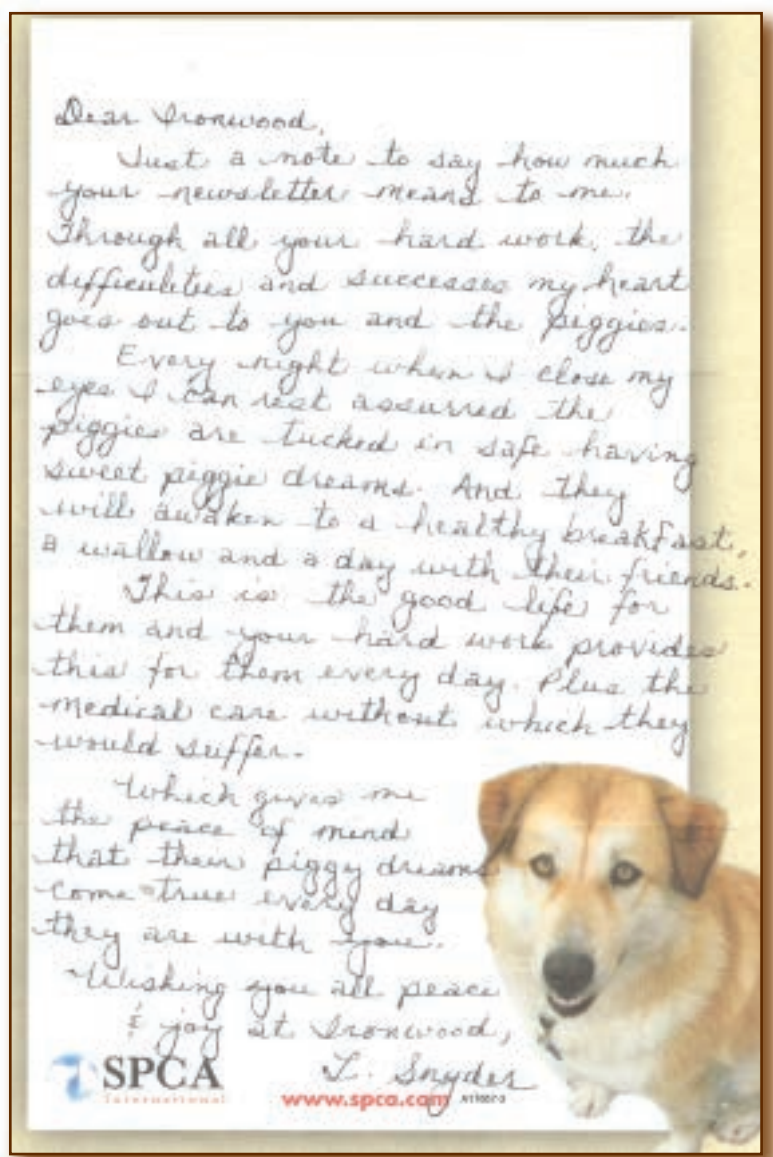 Dear Ironwood,
Just a note to say how much
your newsletter means to me.
Through all your hard work, the
difficulities and successes my heart
goes out to you and the piggies.
Every night when I close my
eyes I can rest assurred the
piggies are tucked in safe having
sweet piggie dreams. And they
will awaken to a healthy breakfast,
a wallow and a day with their friends.
This is the good life for
them and your hard work provides
this for them every day. Plus the
medical care without which they
would suffer.
Which gives me
the peace of mind
that their piggy dreams
come true every day
they are with you.
Wishing you all peace
& joy at Ironwood,
L. Snyder
SPCA
International
www.spca.com